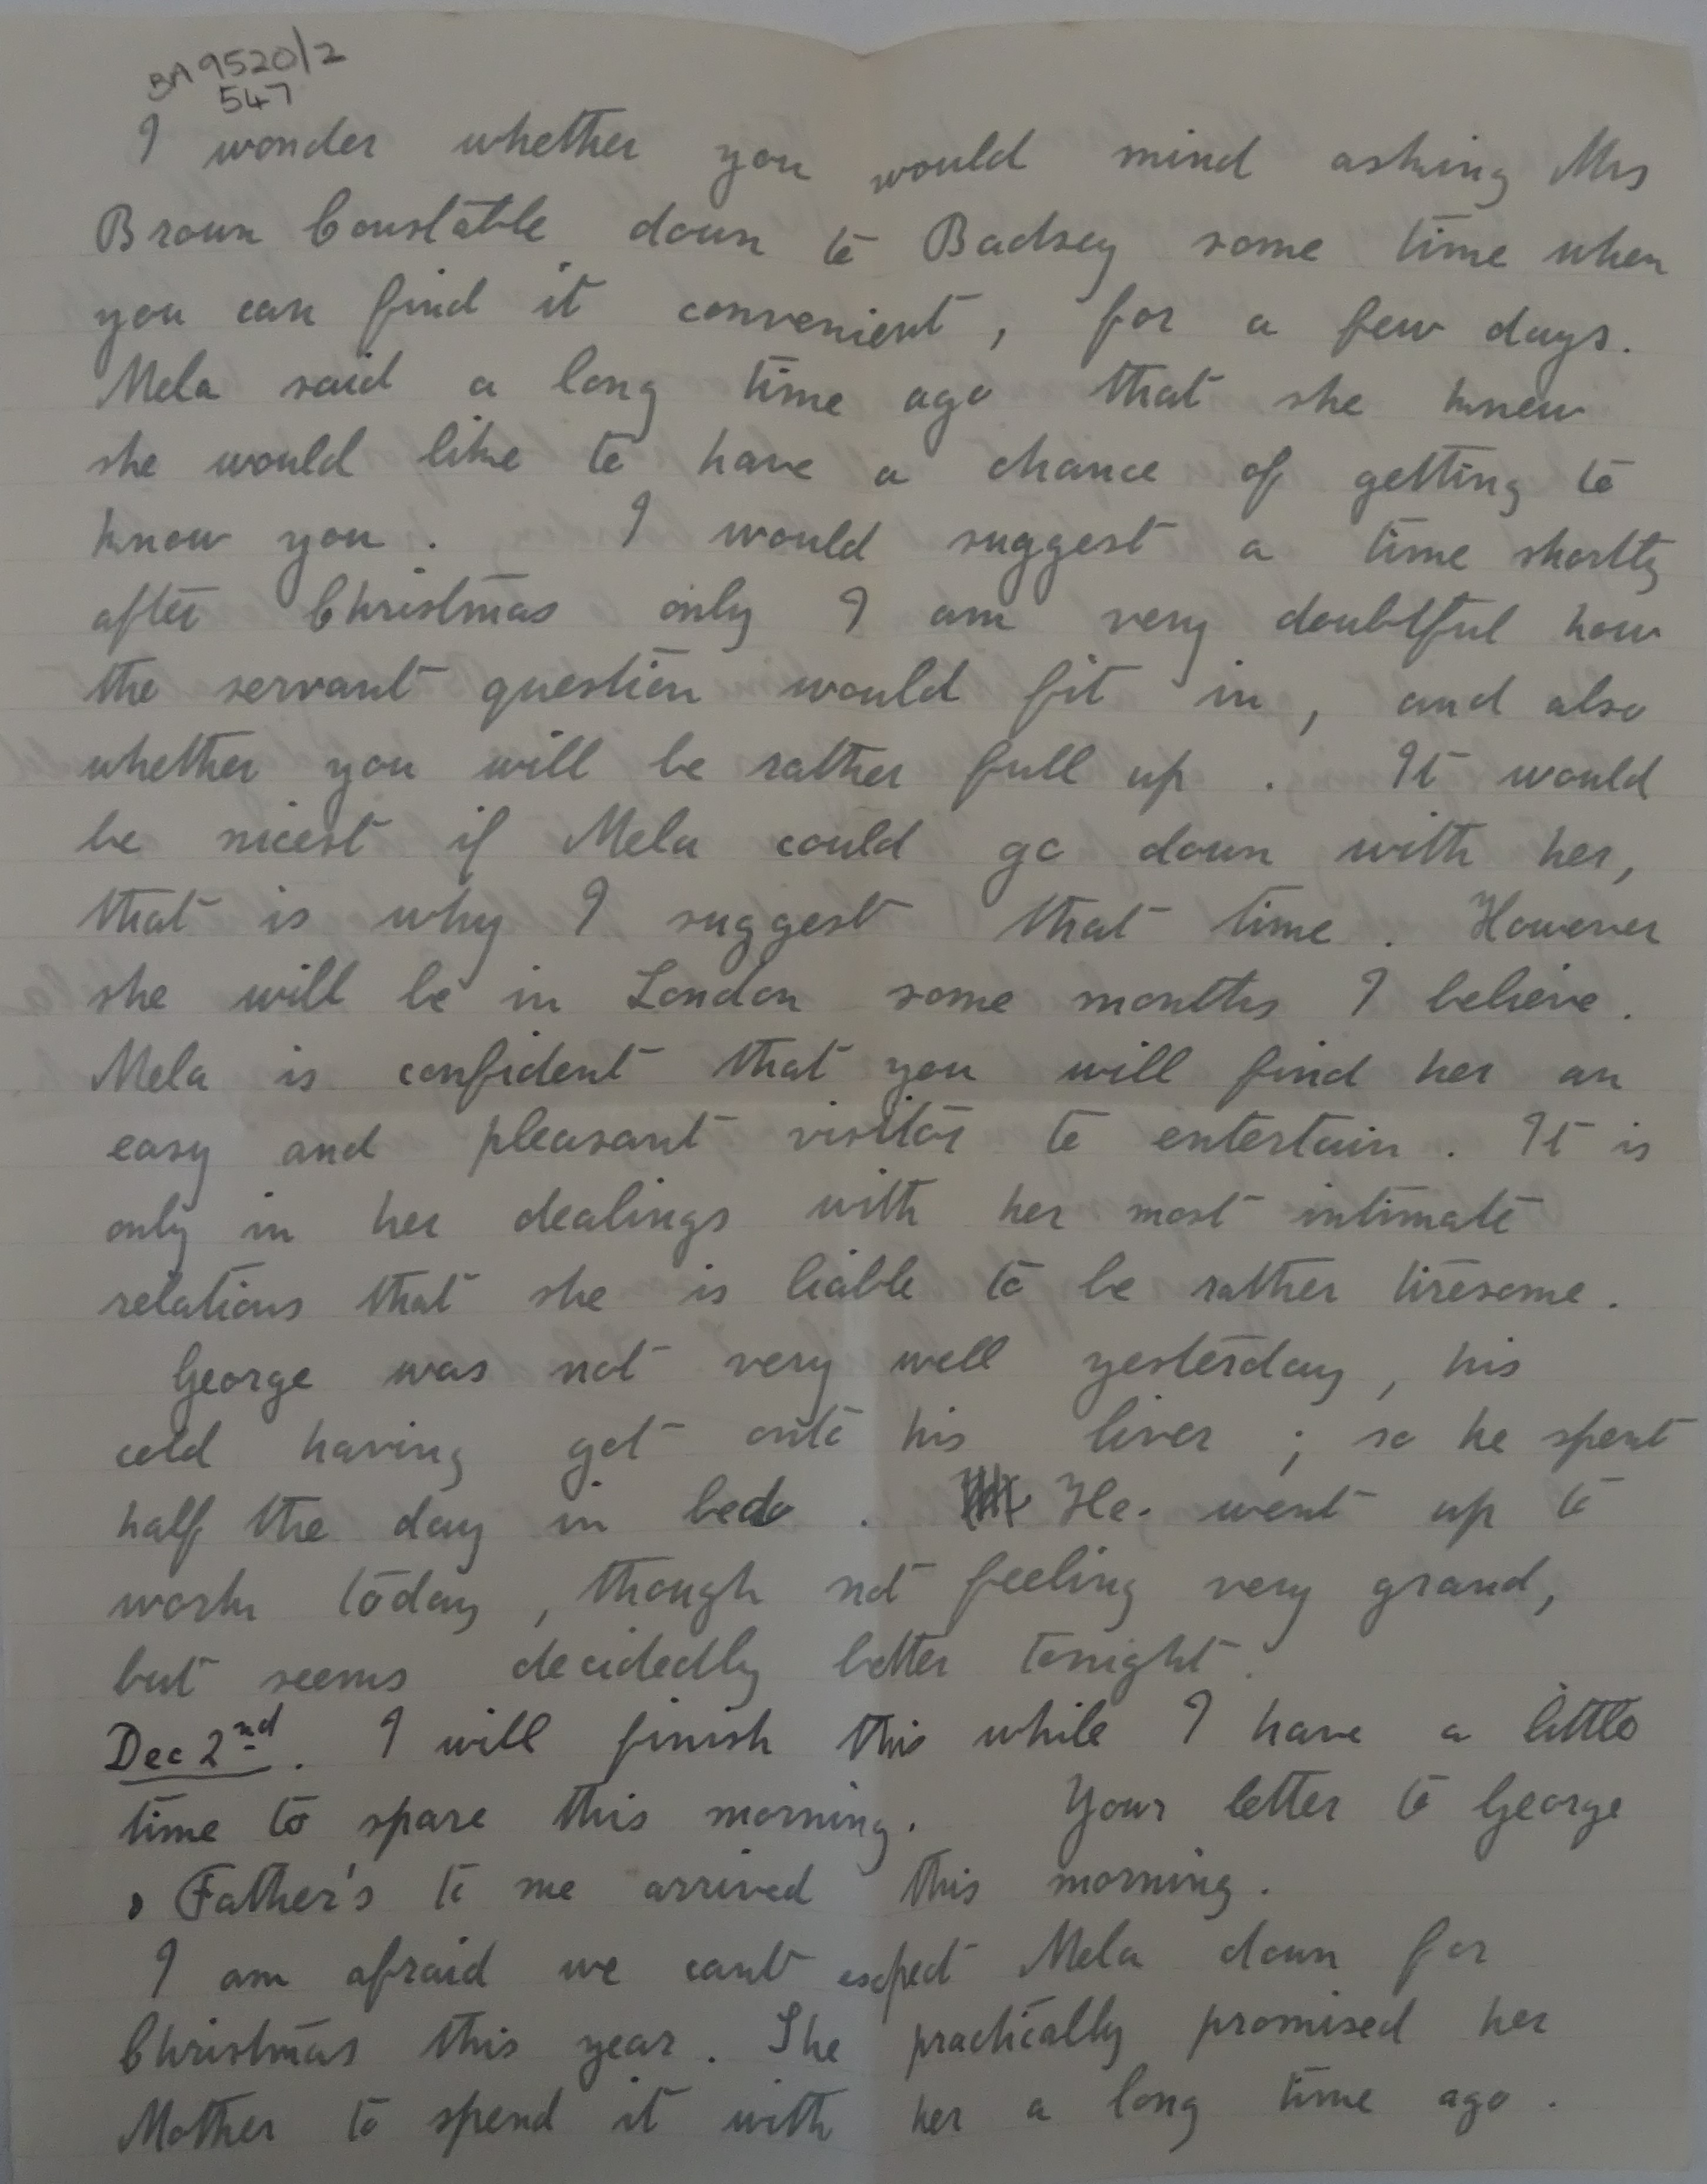 BA 9520/2
547
I wonder whether you would mind asking Mrs
Brown Constable down to Badsey some time when
you can find it convenient, for a few days.
Mela said a long time ago that she knew
she would like to have a chance of getting to
know you. I would suggest a time shortly
after Christmas only I am very doubtful how
the servant question would fit in, and also
whether you will be rather full up. It would
be nicest if Mela could go down with her,
that is why I suggest that time. However
she will be in London some months I believe.
Mela is confident that you will find her an
easy and pleasant visitor to entertain. It is
only in her dealings with her most intimate
relations that she is liable to be rather tiresome.
George was not very well yesterday, his
cold having got onto his liver; so he spent
half the day in bed. He went up to
work today, though not feeling very grand,
but seems decidedly better tonight.
Dec 2nd. I will finish this while I have a little
time to spare this morning. Your letter to George
& Father's to me arrived this morning.
I am afraid we cant expect Mela down for
Christmas this year. She practically promised her
Mother to spend it with her a long time ago.